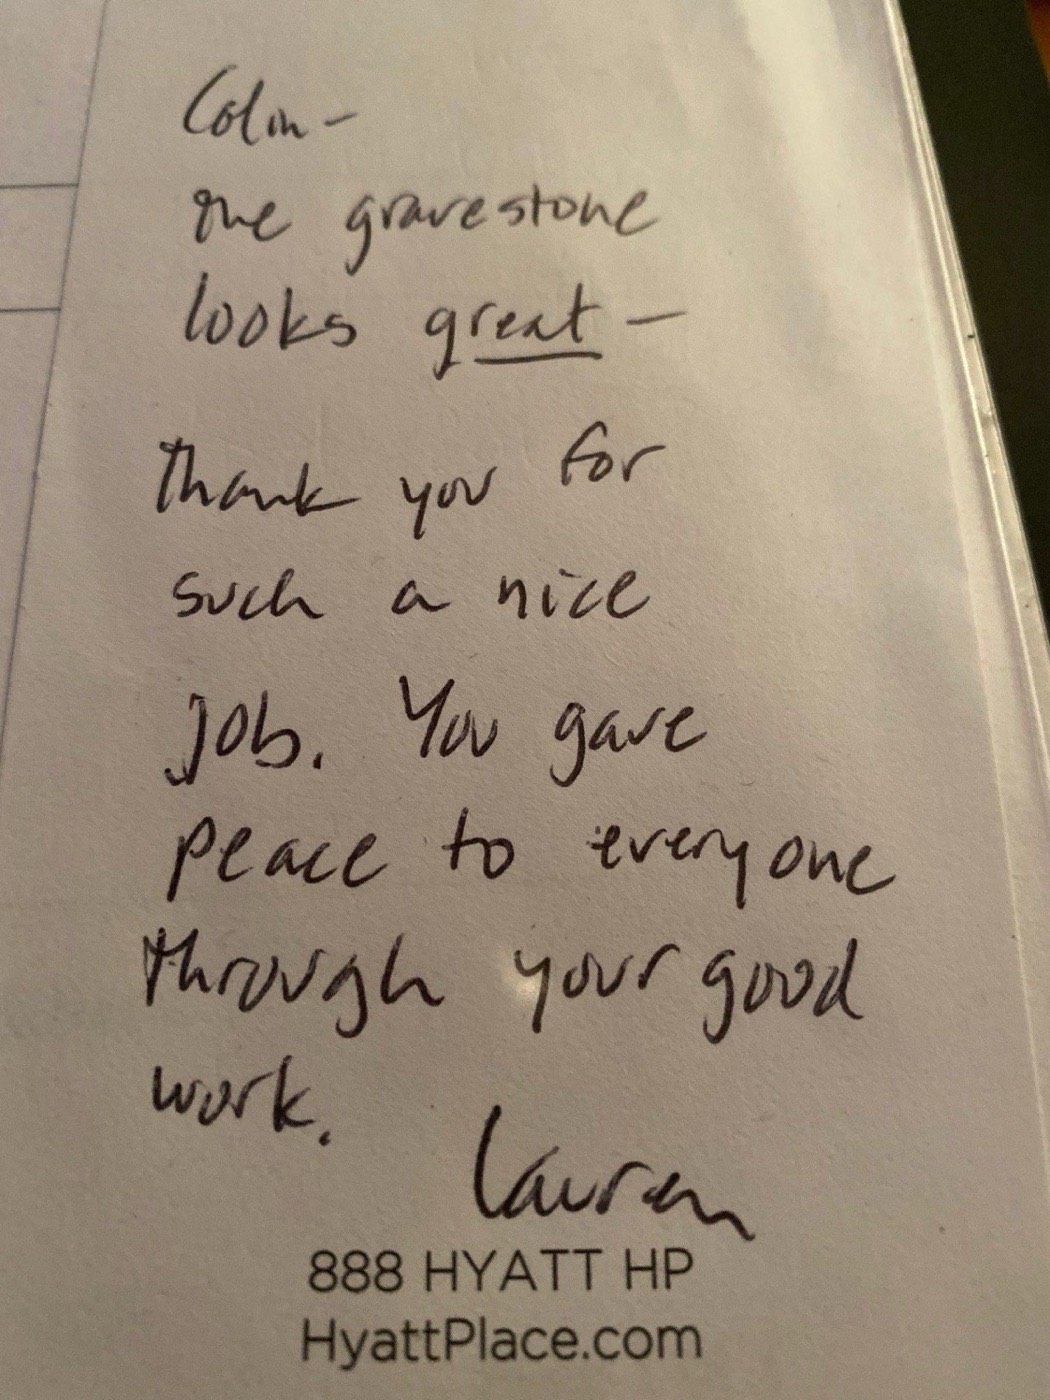 Colin-
the gravestone
looks great -
thank you for
such a nice
job. You gave
peace to everyone
through your good
work.
Lauren
888 HYATT HP
HyattPlace.com